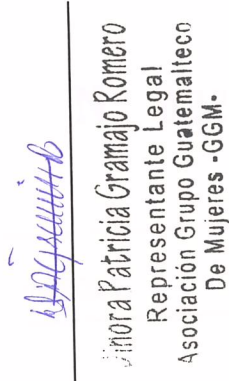 Patricia Gramajo Romero
Representante Legal
Asociación Grupo Guatemalteco
De Mujeres -GGM-